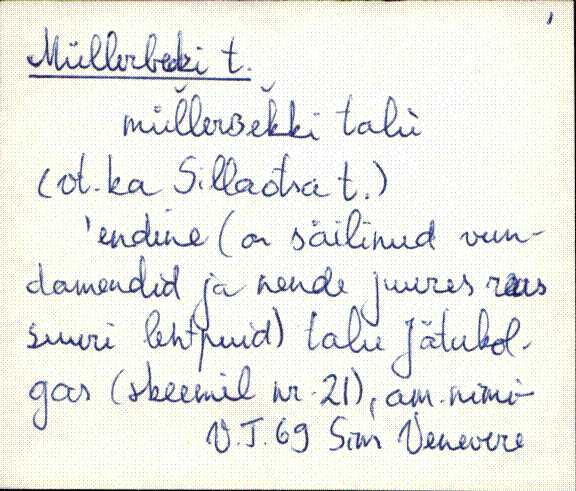 Müllerbeki t.
müľľerʙèkki talù
(vt. ka Sillaotsa t.)
'endine (on säilinud vun-
damendid ja nende juures reas
suuri lehtpuid) talu Jätukol-
gas (skeemil nr. 21), am. nimi
V.J. 69 Sim Venevere